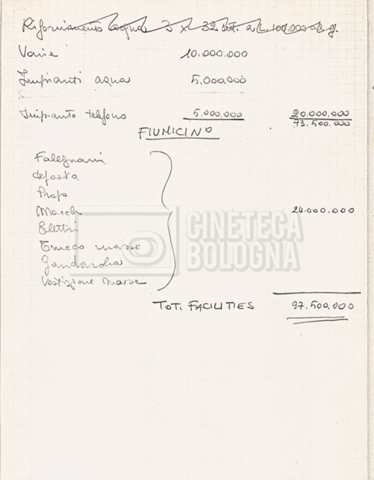 Rifornimento acqua 3 x 32 st. a L. 100.000 al g.
Varie 10.000.000
Impianti acqua 5.000.000
Impianto telefono 5.000.000 20.000.000
73.500.000
FIUMICINO
Falegnami
deposito
Props
Macch.
24.000.000
Elettr.
Trucco masse
CINETECA
BOLOGNA
Vestizione masse
TOT. FACILITIES 97.500.000